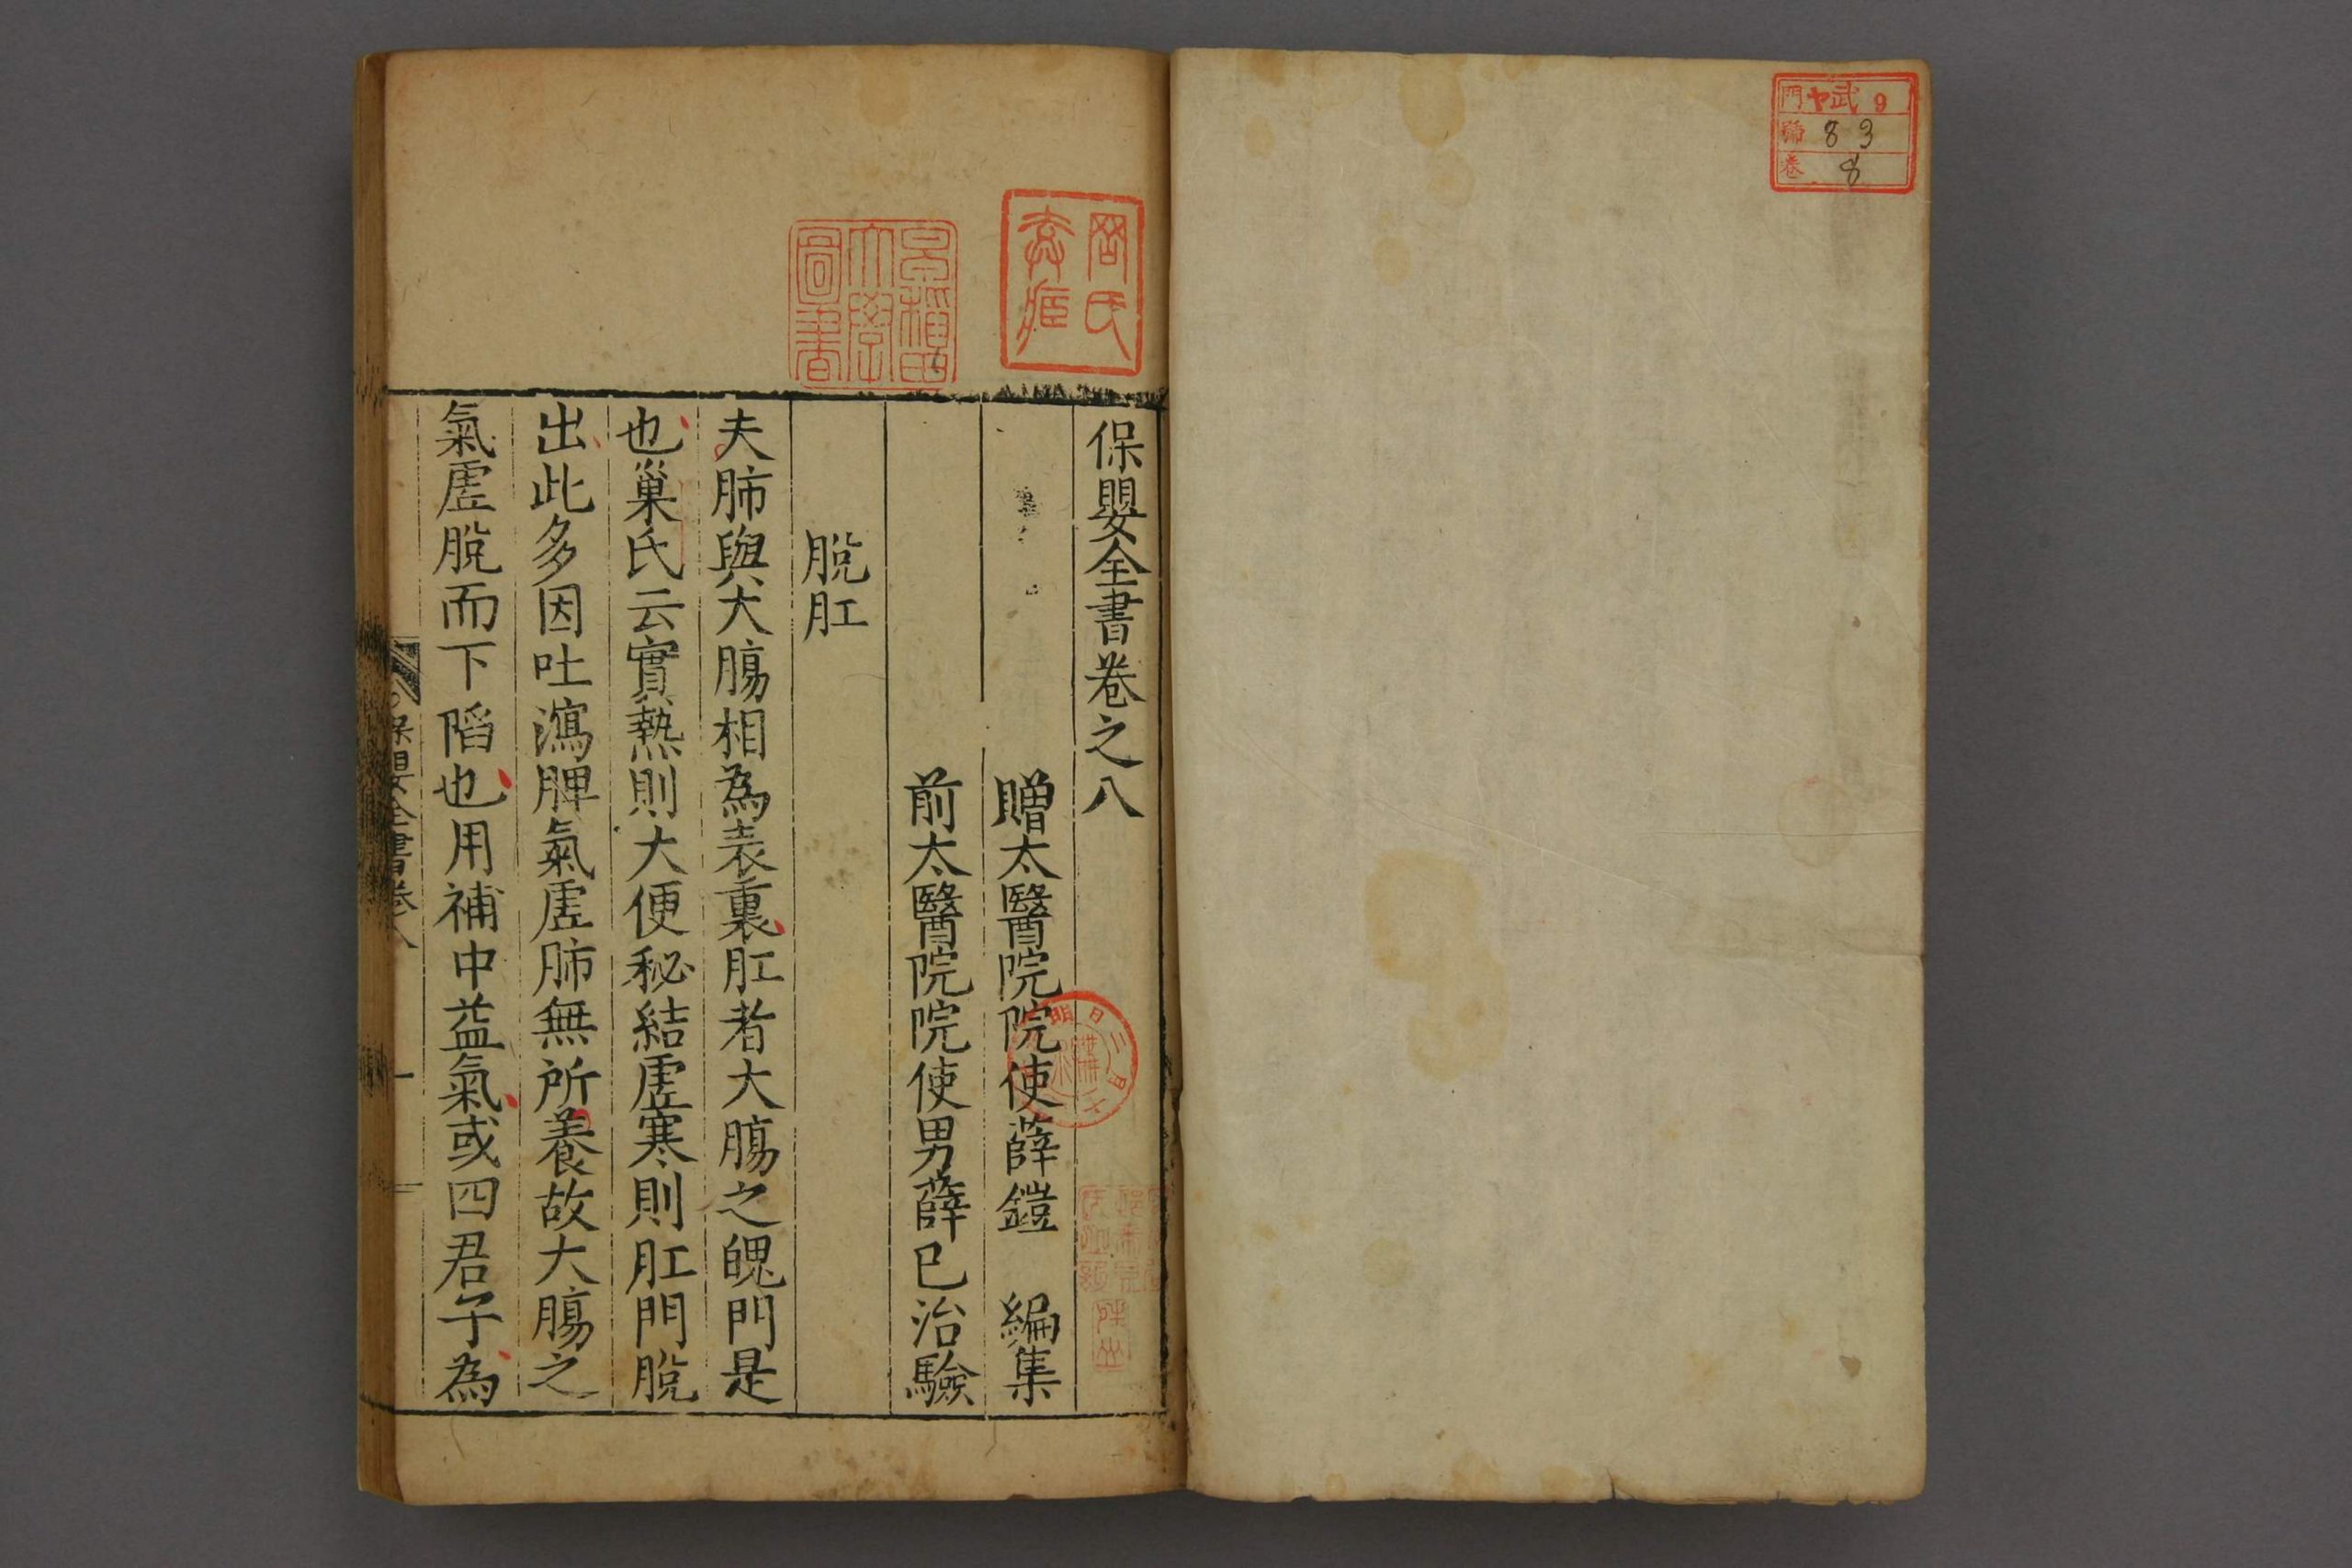 門 ヤ武 9
號 83
卷 8
早稲田大學圖書
保嬰全書卷之八
贈太醫院院使薛鎧 編集
前太醫院院使男薛已治驗
脫肛
夫肺與大腸相為表裏肛者大腸之魄門是
也巢氏云實熱則大便秘結虛寒則肛門脫
出此多因吐瀉脾氣虛肺無所養故大腸之
氣虛脫而下陷也用補中益氣或四君子為
保嬰全書卷八
一